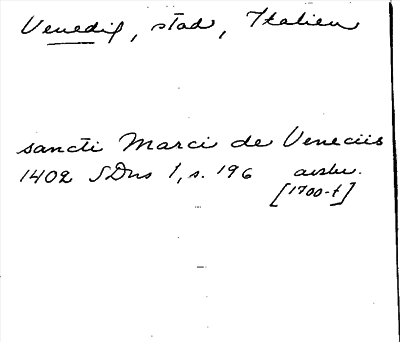 Venedig, stad, Italien
sancti Marci de Veneciis
1402 SDns 1, s. 196 avskr.
[1700-t]